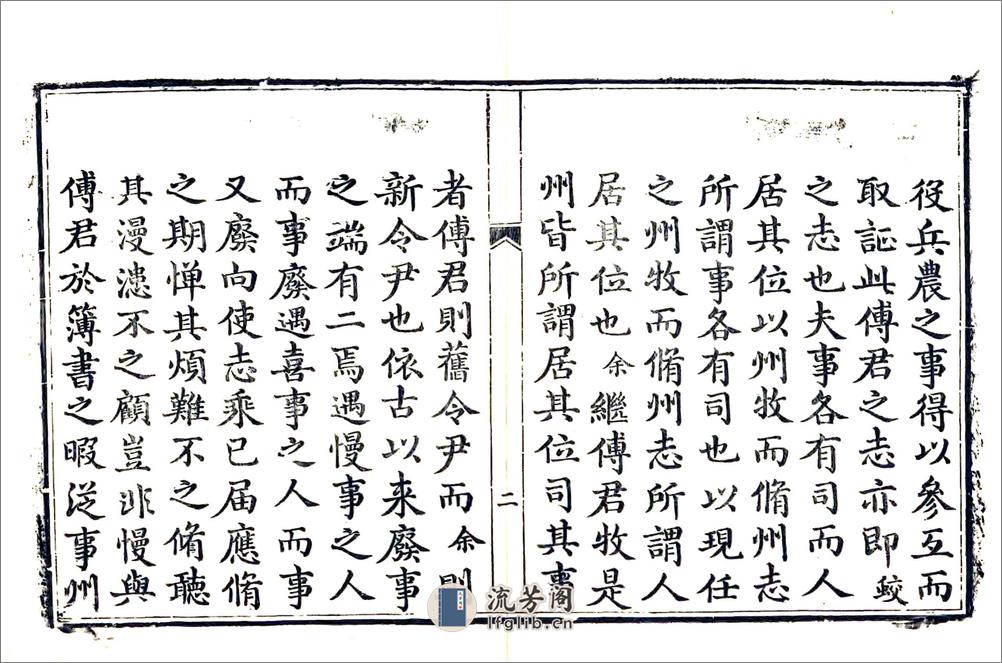 役兵農之事得以參互而
取証此傅君之志亦即蛟
之志也夫事各有司而人
居其位以州牧而脩州志
所謂事各有司也以現任
之州牧而脩州志所謂人
居其位也余繼傅君牧是
州皆所謂居其位司其事
二
者傅君則舊令尹而余則
新令尹也依古以来廢事
之端有二焉遇慢事之人
而事廢遇喜事之人而事
又廢向使志乘已届應脩
之期憚其煩難不之脩聽
其漫漶不之顧豈非慢與
傅君於簿書之暇從事州
流芳阁
lfglib.cn